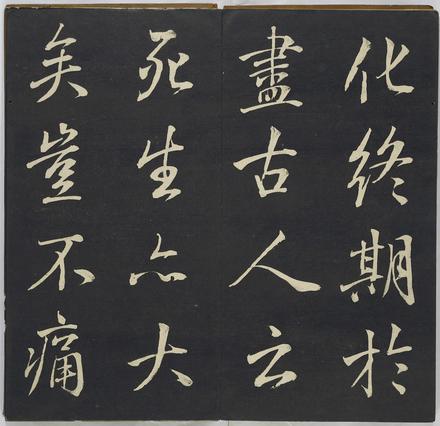 化終期於
盡古人云
死生亦大
矣豈不痛